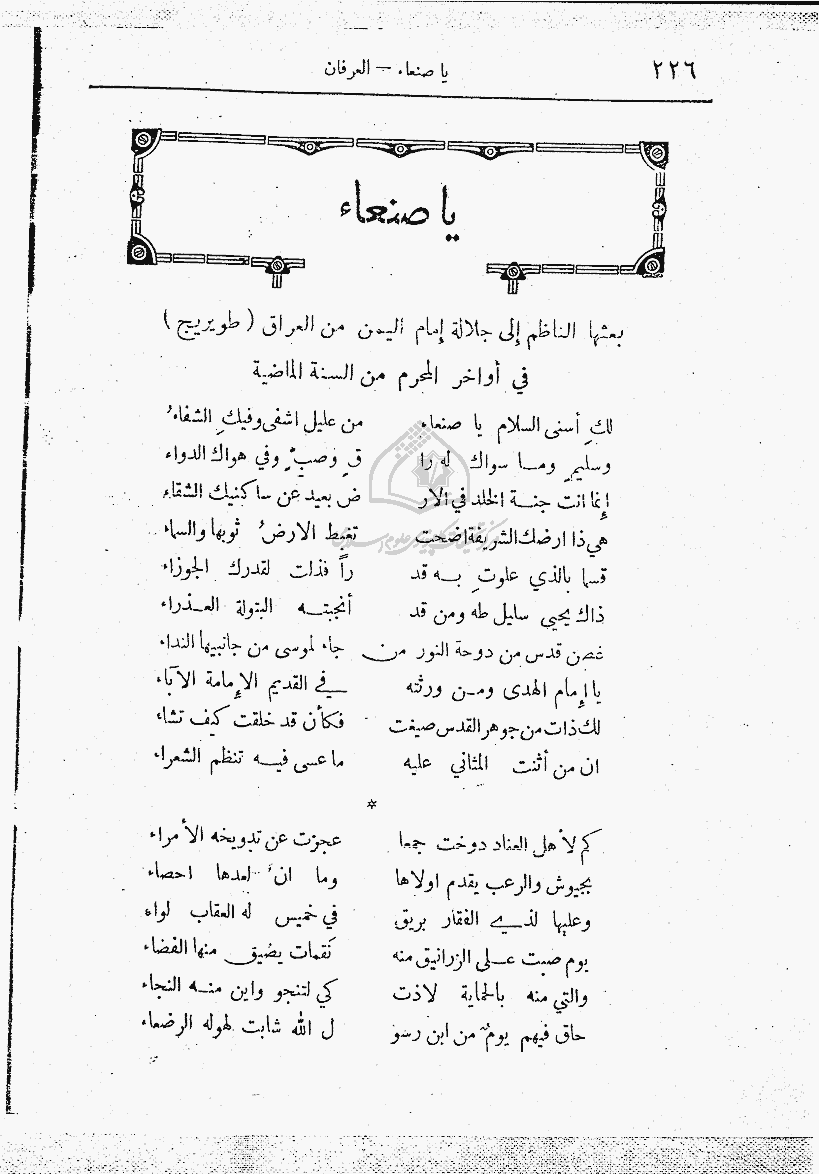 ٢٢٦
يا صنعاء – العرفان
يا صنعاء
بعثها الناظم إلى جلالة إمام اليمن من العراق ( طويريج )
في أواخر المحرم من السنة الماضية
لكِ أسنى السلام يا صنعاء من عليل اشفى وفيكِ الشفاءُ
وسليمٍ ومــا سواك له را قٍ وصبٍّ وفي هواك الدواء
إنما انت جنــة الخلد في الار ض بعيد عن ساكنيك الشقاء
هي ذا ارضك الشريفة اضحت تغبط الارضُ ثوبها والسماء
قسما بالذي علوتِ بــه قد راً فذات لقدرك الجوزاء
ذاك يحيى سليل طه ومن قد أنجبتــه البتولة العــذراء
غصن قدس من دوحة النور من جاء لموسى من جانبيها النداء
يا إمام الهدى ومــن ورثته في القديم الإمامة الآباء
لك ذات من جوهر القدس صيغت فكأن قد خلقت كيف تشاء
ان من أثنت المثاني عليه ما عسى فيــه تنظم الشعراء
*
كم لأهل العناد دوخت جمعا عجزت عن تدويخه الأمراء
بجيوش والرعب يقدم اولاها وما ان لعدها احصاء
وعليها لذي الفقار بريق في خميس له العقاب لواء
يوم صبت عــلى الزرانيق منه نقمات يضيق منها الفضاء
والتي منه بالحماية لاذت كي لتنجو واين منــه النجاء
حاق فيهم يومٌ من ابن رسو ل الله شابت لهوله الرضعاء